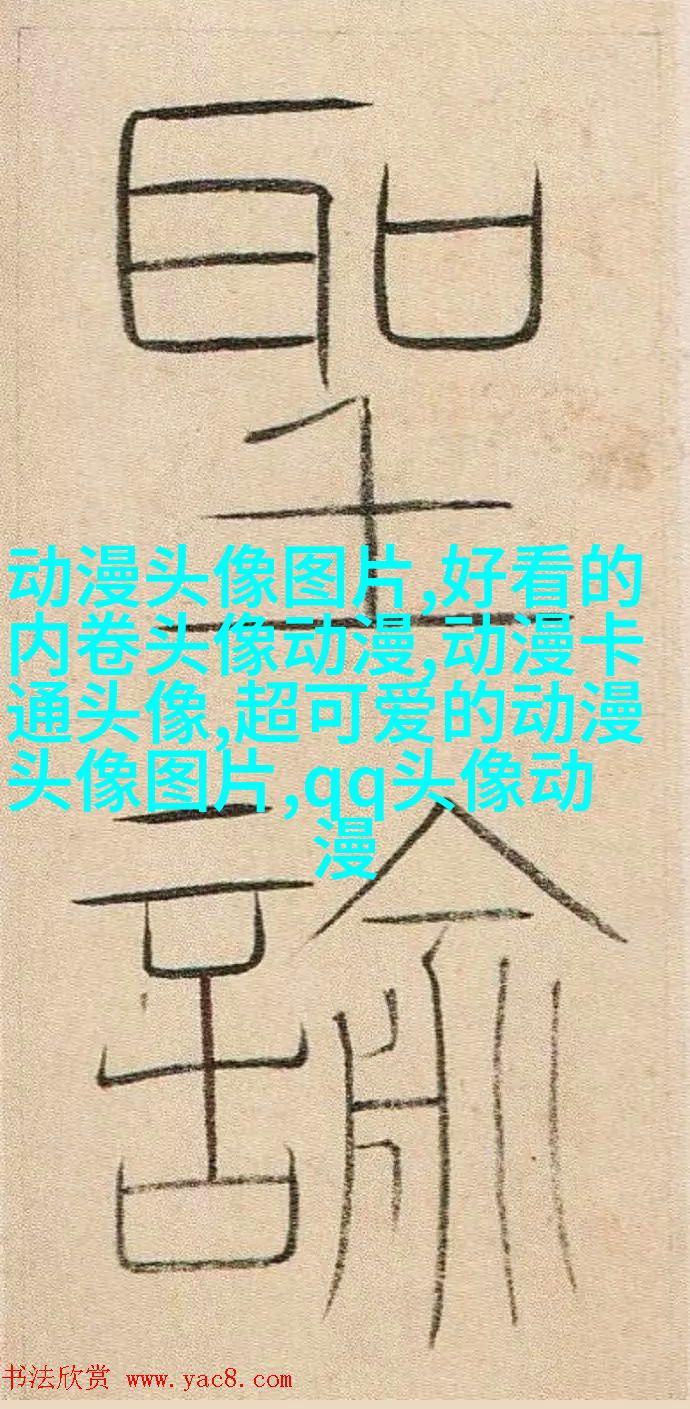 聖
諭
动漫头像图片,好看的
内卷头像动漫,动漫卡
通头像,超可爱的动漫
头像图片,qq头像动
漫
书法欣赏 www.yac8.com